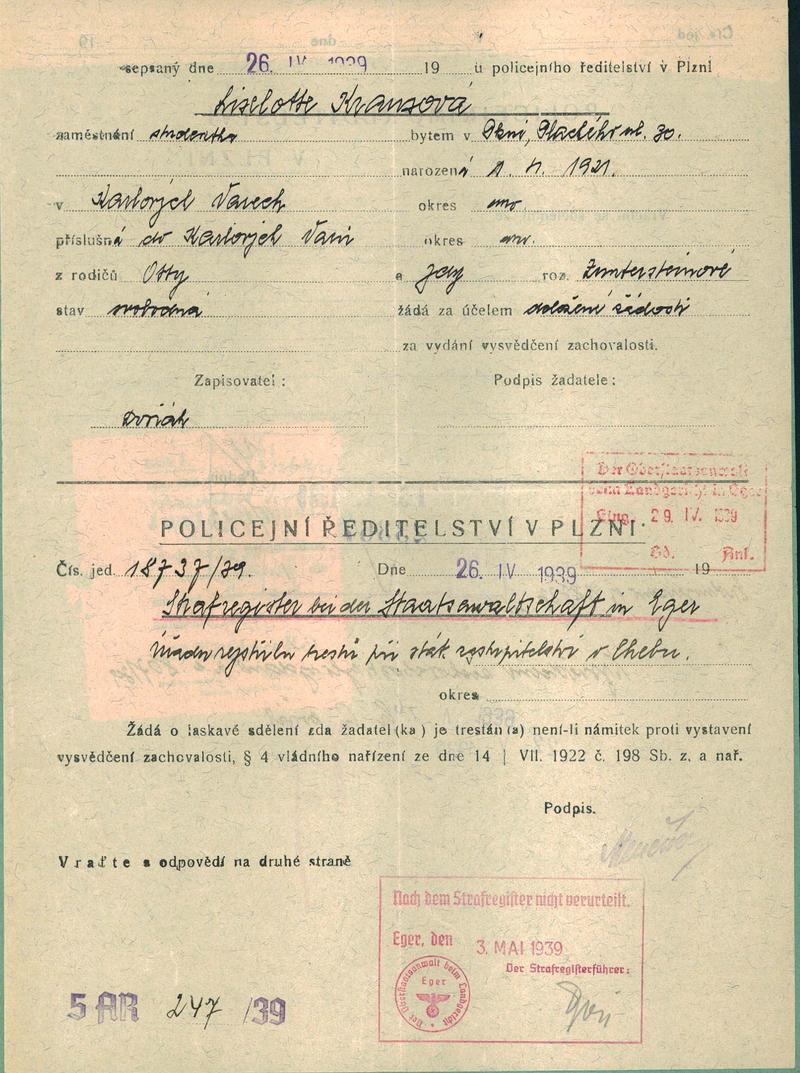 sepsaný dne 26. IV 1939 19 u policejního ředitelství v Plzni
Liselotte Krausová
zaměstnání studentka bytem v Plzni, Plachého ul. 30.
narozená 1. 1921.
v Karlových Varech okres
příslušná do Karlových Varů okres
z rodičů Otty a Idy roz.
stav svobodná žádá za účelem doložení žádosti
za vydání vysvědčení zachovalosti.
Zapisovatel : Podpis žadatele :
Der Oberstaatsanwalt
beim Landgericht in Eger
Eing. 29. IV. 1939
Bd. Anl.
POLICEJNÍ ŘEDITELSTVÍ V PLZNI
Čís. jed. 18737/39. Dne 26. IV 1939 19
Strafregister bei der Staatsawaltschaft in Eger
Úřadu rejstříku trestů při stát. zastupitelství v Chebu.
okres
Žádá o laskavé sdělení zda žadatel (ka) je trestán (a) není-li námitek proti vystavení
vysvědčení zachovalosti, § 4 vládního nařízení ze dne 14 | VII. 1922 č. 198 Sb. z. a nař.
Podpis.
Vraťte s odpovědí na druhé straně
Nach dem Strafregister nicht verurteilt.
Eger, den 3. MAI 1939
Der Strafregisterführer:
Der Oberstaatsanwalt beim Landgericht
Eger
5 AR 247 /39